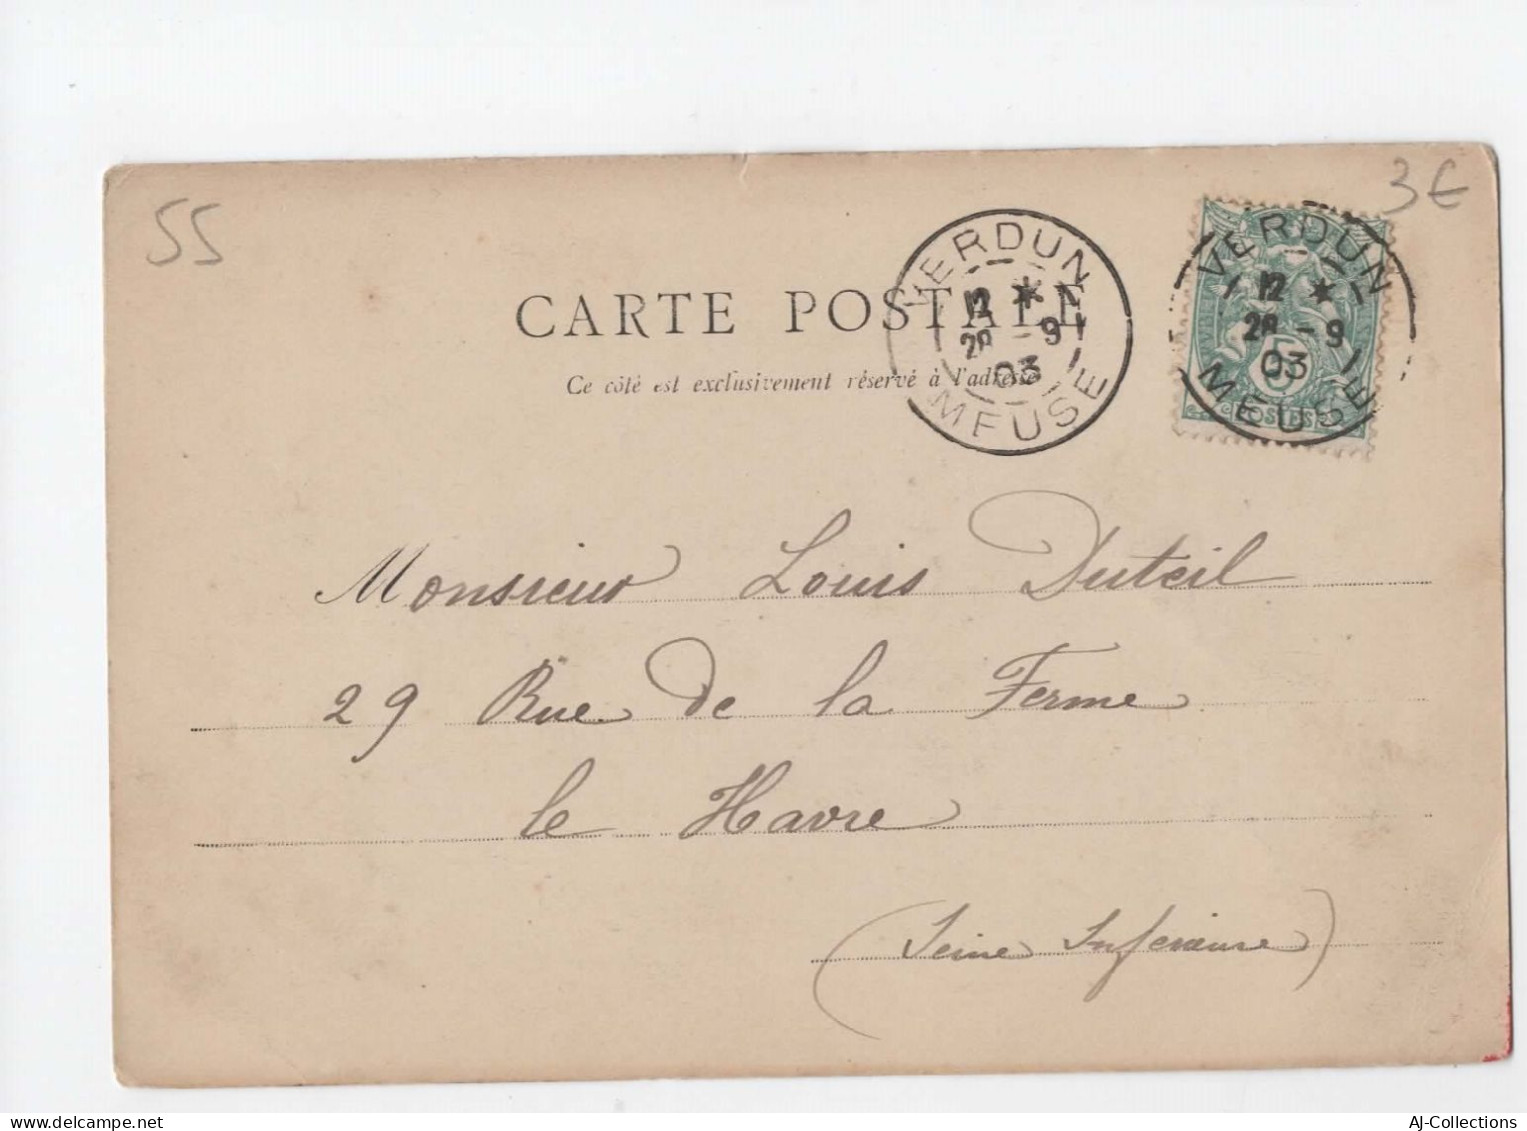 55
3€
CARTE POSTALE
Ce côté est exclusivement réservé à l'adresse
VERDUN
12 *
28 - 9
03
MEUSE
VERDUN
12 *
28 - 9
03
MEUSE
5
POSTES
Monsieur Louis Duteil
29 Rue de la Ferme
le Havre
(Seine Inférieure)
AJ-Collections